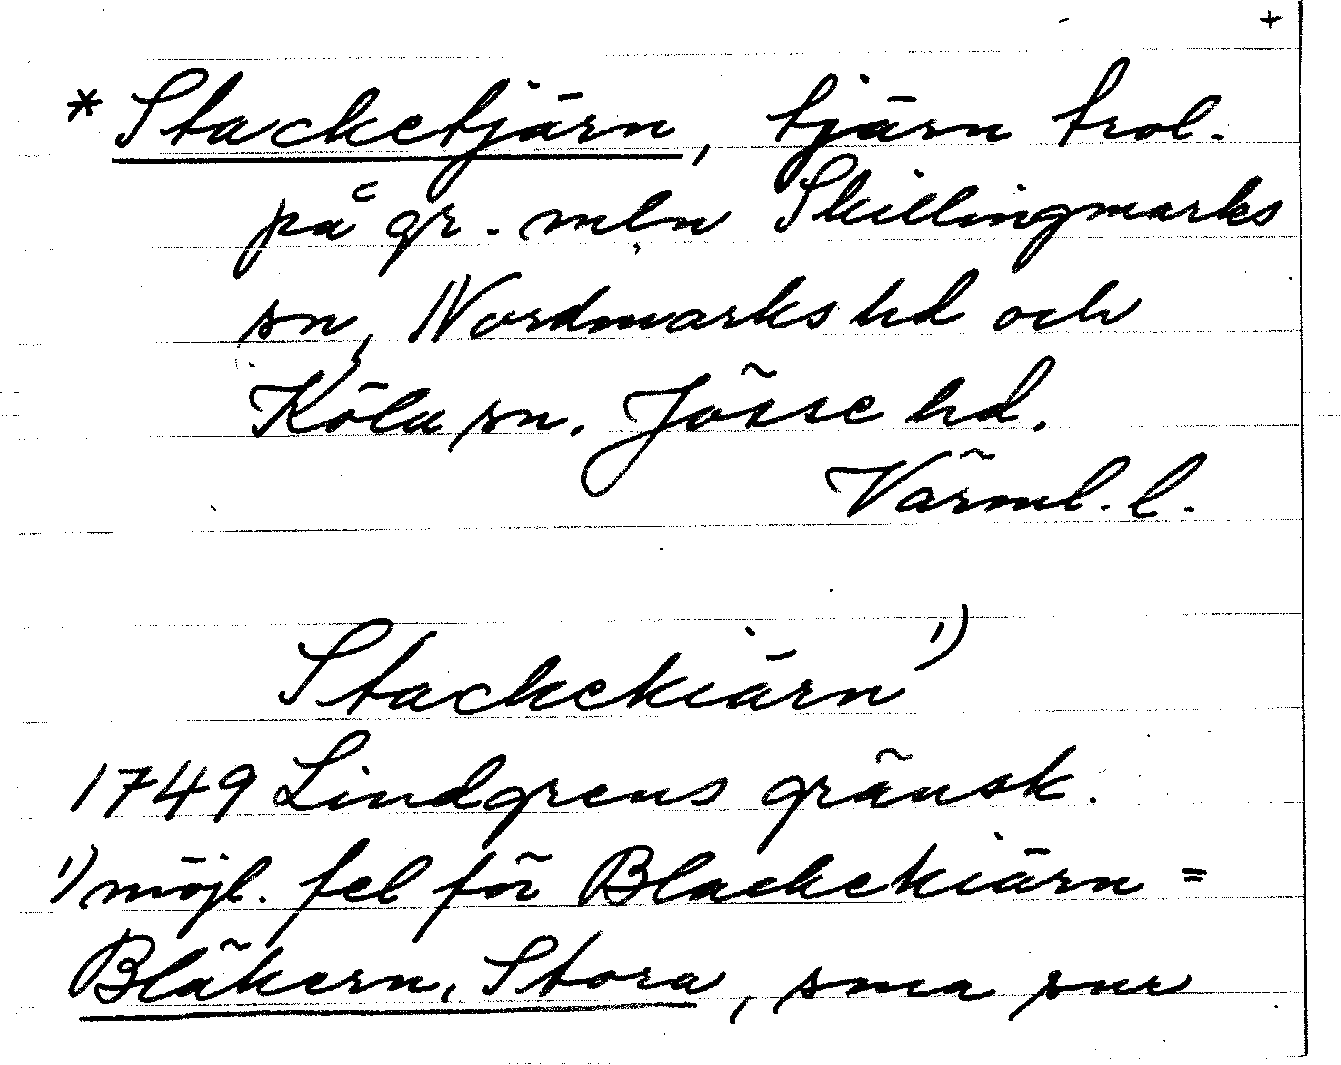 +
*Stacketjärn, tjärn trol.
på gr. mln Skillingmarks
sn, Nordmarks hd och
Köla sn. Jösse hd.
Värml. l.
Stackekiärn 1)
1749 Lindgrens gränsk.
1) möjl. fel för Blackekiärn =
Bläkern, Stora, sma snr